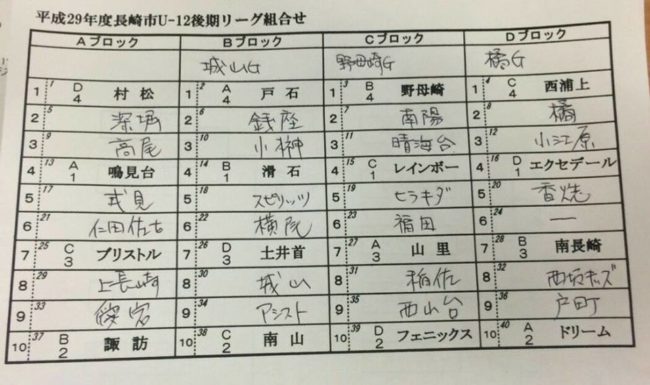 平成29年度長崎市U-12後期リーグ組合せ
Aブロック Bブロック Cブロック Dブロック
城山G 野母崎G 橘G
1 1 D4 村松 1 2 A4 戸石 1 3 B4 野母崎 1 4 C4 西浦上
2 5 深堀 2 6 銭座 2 7 南陽 2 8 橘
3 9 高尾 3 10 小榊 3 11 晴海台 3 12 小江原
4 13 A1 鳴見台 4 14 B1 滑石 4 15 C1 レインボー 4 16 D1 エクセデール
5 17 式見 5 18 スピリッツ 5 19 ヒラキダ 5 20 香焼
6 21 仁田佐古 6 22 横尾 6 23 福田 6 24 ―
7 25 C3 ブリストル 7 26 D3 土井首 7 27 A3 山里 7 28 B3 南長崎
8 29 上長崎 8 30 城山 8 31 稲佐 8 32 西坂キッズ
9 33 9 34 アシスト 9 35 西山台 9 36 戸町
10 37 B2 諏訪 10 38 C2 南山 10 39 D2 フェニックス 10 40 A2 ドリーム